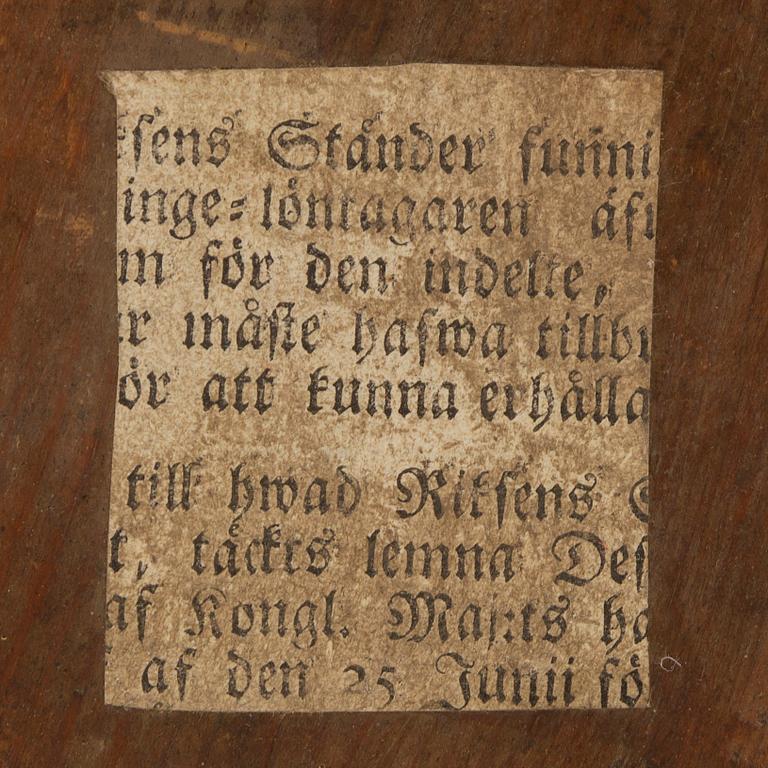 ksens Ständer funni
inge-löntagaren äfw
m för den indelte,
er måste hafwa tillbr
ör att kunna erhålla
till hwad Riksens S
t, täckts lemna Des
af Kongl. Maj:ts ha
af den 25 Junii fö